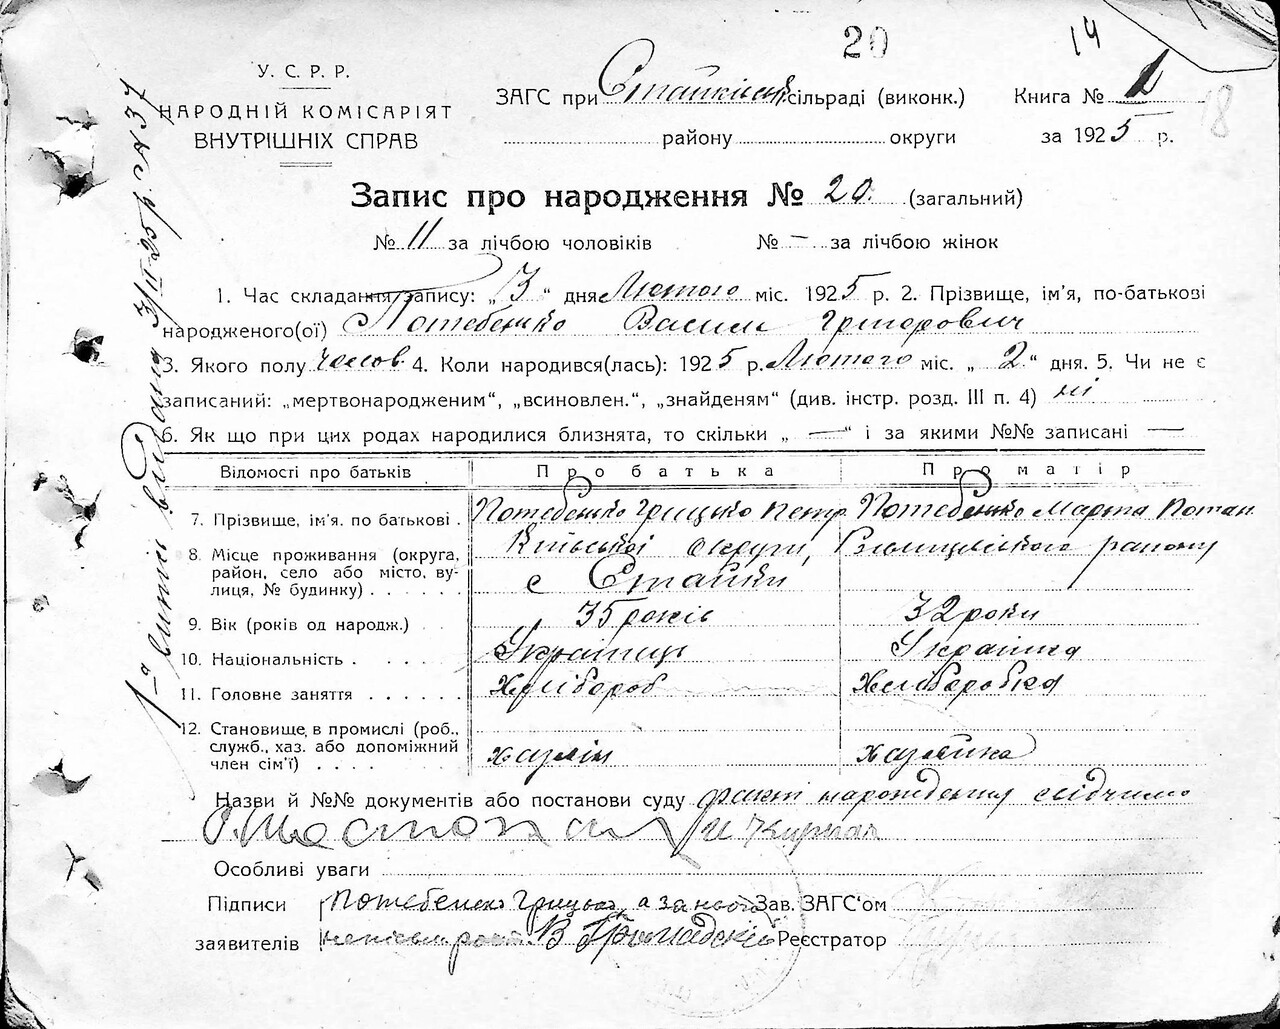 20
14
18
У. С. Р. Р.
НАРОДНІЙ КОМІСАРІЯТ
ВНУТРІШНІХ СПРАВ
ЗАГС при Стайківській сільраді (виконк.) Книга № 1
району округи за 1925 р.
Запис про народження № 20. (загальний)
№ 11 за лічбою чоловіків № — за лічбою жінок
1. Час складання запису: „ 3 “ дня Лютого міс. 1925 р. 2. Прізвище, ім’я, по-батькові
народженого(ої) Потебенько Василь Григорович
3. Якого полу чолов. 4. Коли народився(лась): 1925 р. Лютого міс. „ 2 “ дня. 5. Чи не є
записаний: „мертвонародженим“, „всиновлен.“, „знайденям“ (див. інстр. розд. III п. 4) ні
6. Як що при цих родах народилися близнята, то скільки „ — “ і за якими №№ записані —
Відомості про батьків Про батька Про матір
7. Прізвище, ім’я. по батькові . Потебенько Грицько Петр. Потебенько Марта Потап.
8. Місце проживання (округа, Київської округи, району
район, село або місто, ву- с Стайки
лиця, № будинку) . . . . . .
9. Вік (років од народж.) . . 35 років 32 роки
10. Національність . . . . . Українць Українка
11. Головне заняття . . . . . . Хлібороб Хлиборобка
12. Становище в промислі (роб.,
служб., хаз. або допоміжний
член сім’ї) . . . . хазяїн хазяйка
Назви й №№ документів або постанови суду факт народження свідчимо
Особливі уваги
Підписи Потебенько Грицько, а за нього Зав. ЗАГС‘ом
заявителів неписьм. В Громадській Реєстратор